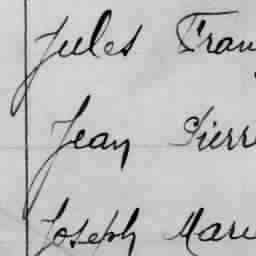 Jules Fran
Jean Pierr
Joseph Marie